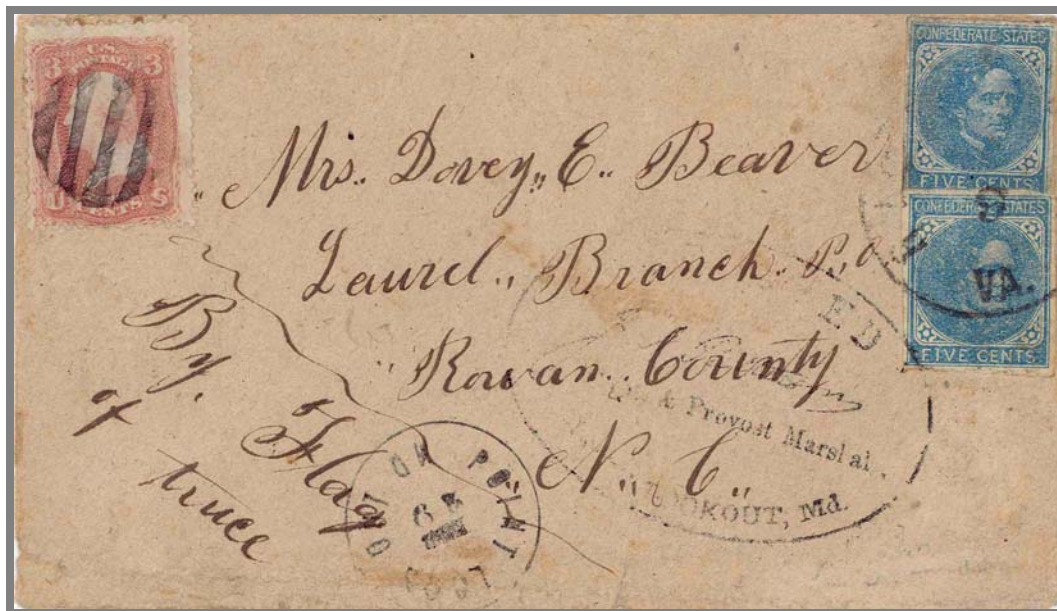 U.S. POSTAGE
3 3
U CENTS S
CONFEDERATE STATES
FIVE CENTS
CONFEDERATE STATES
FIVE CENTS
VA.
Mrs. Dovey,, E.. Beaver
Laurel,, Branch. P,o
Rowan.. County
N,, C,,
By. Flag
of truce
ED
& Provost Marshal
LOOKOUT, Md.
POINT
LOOK